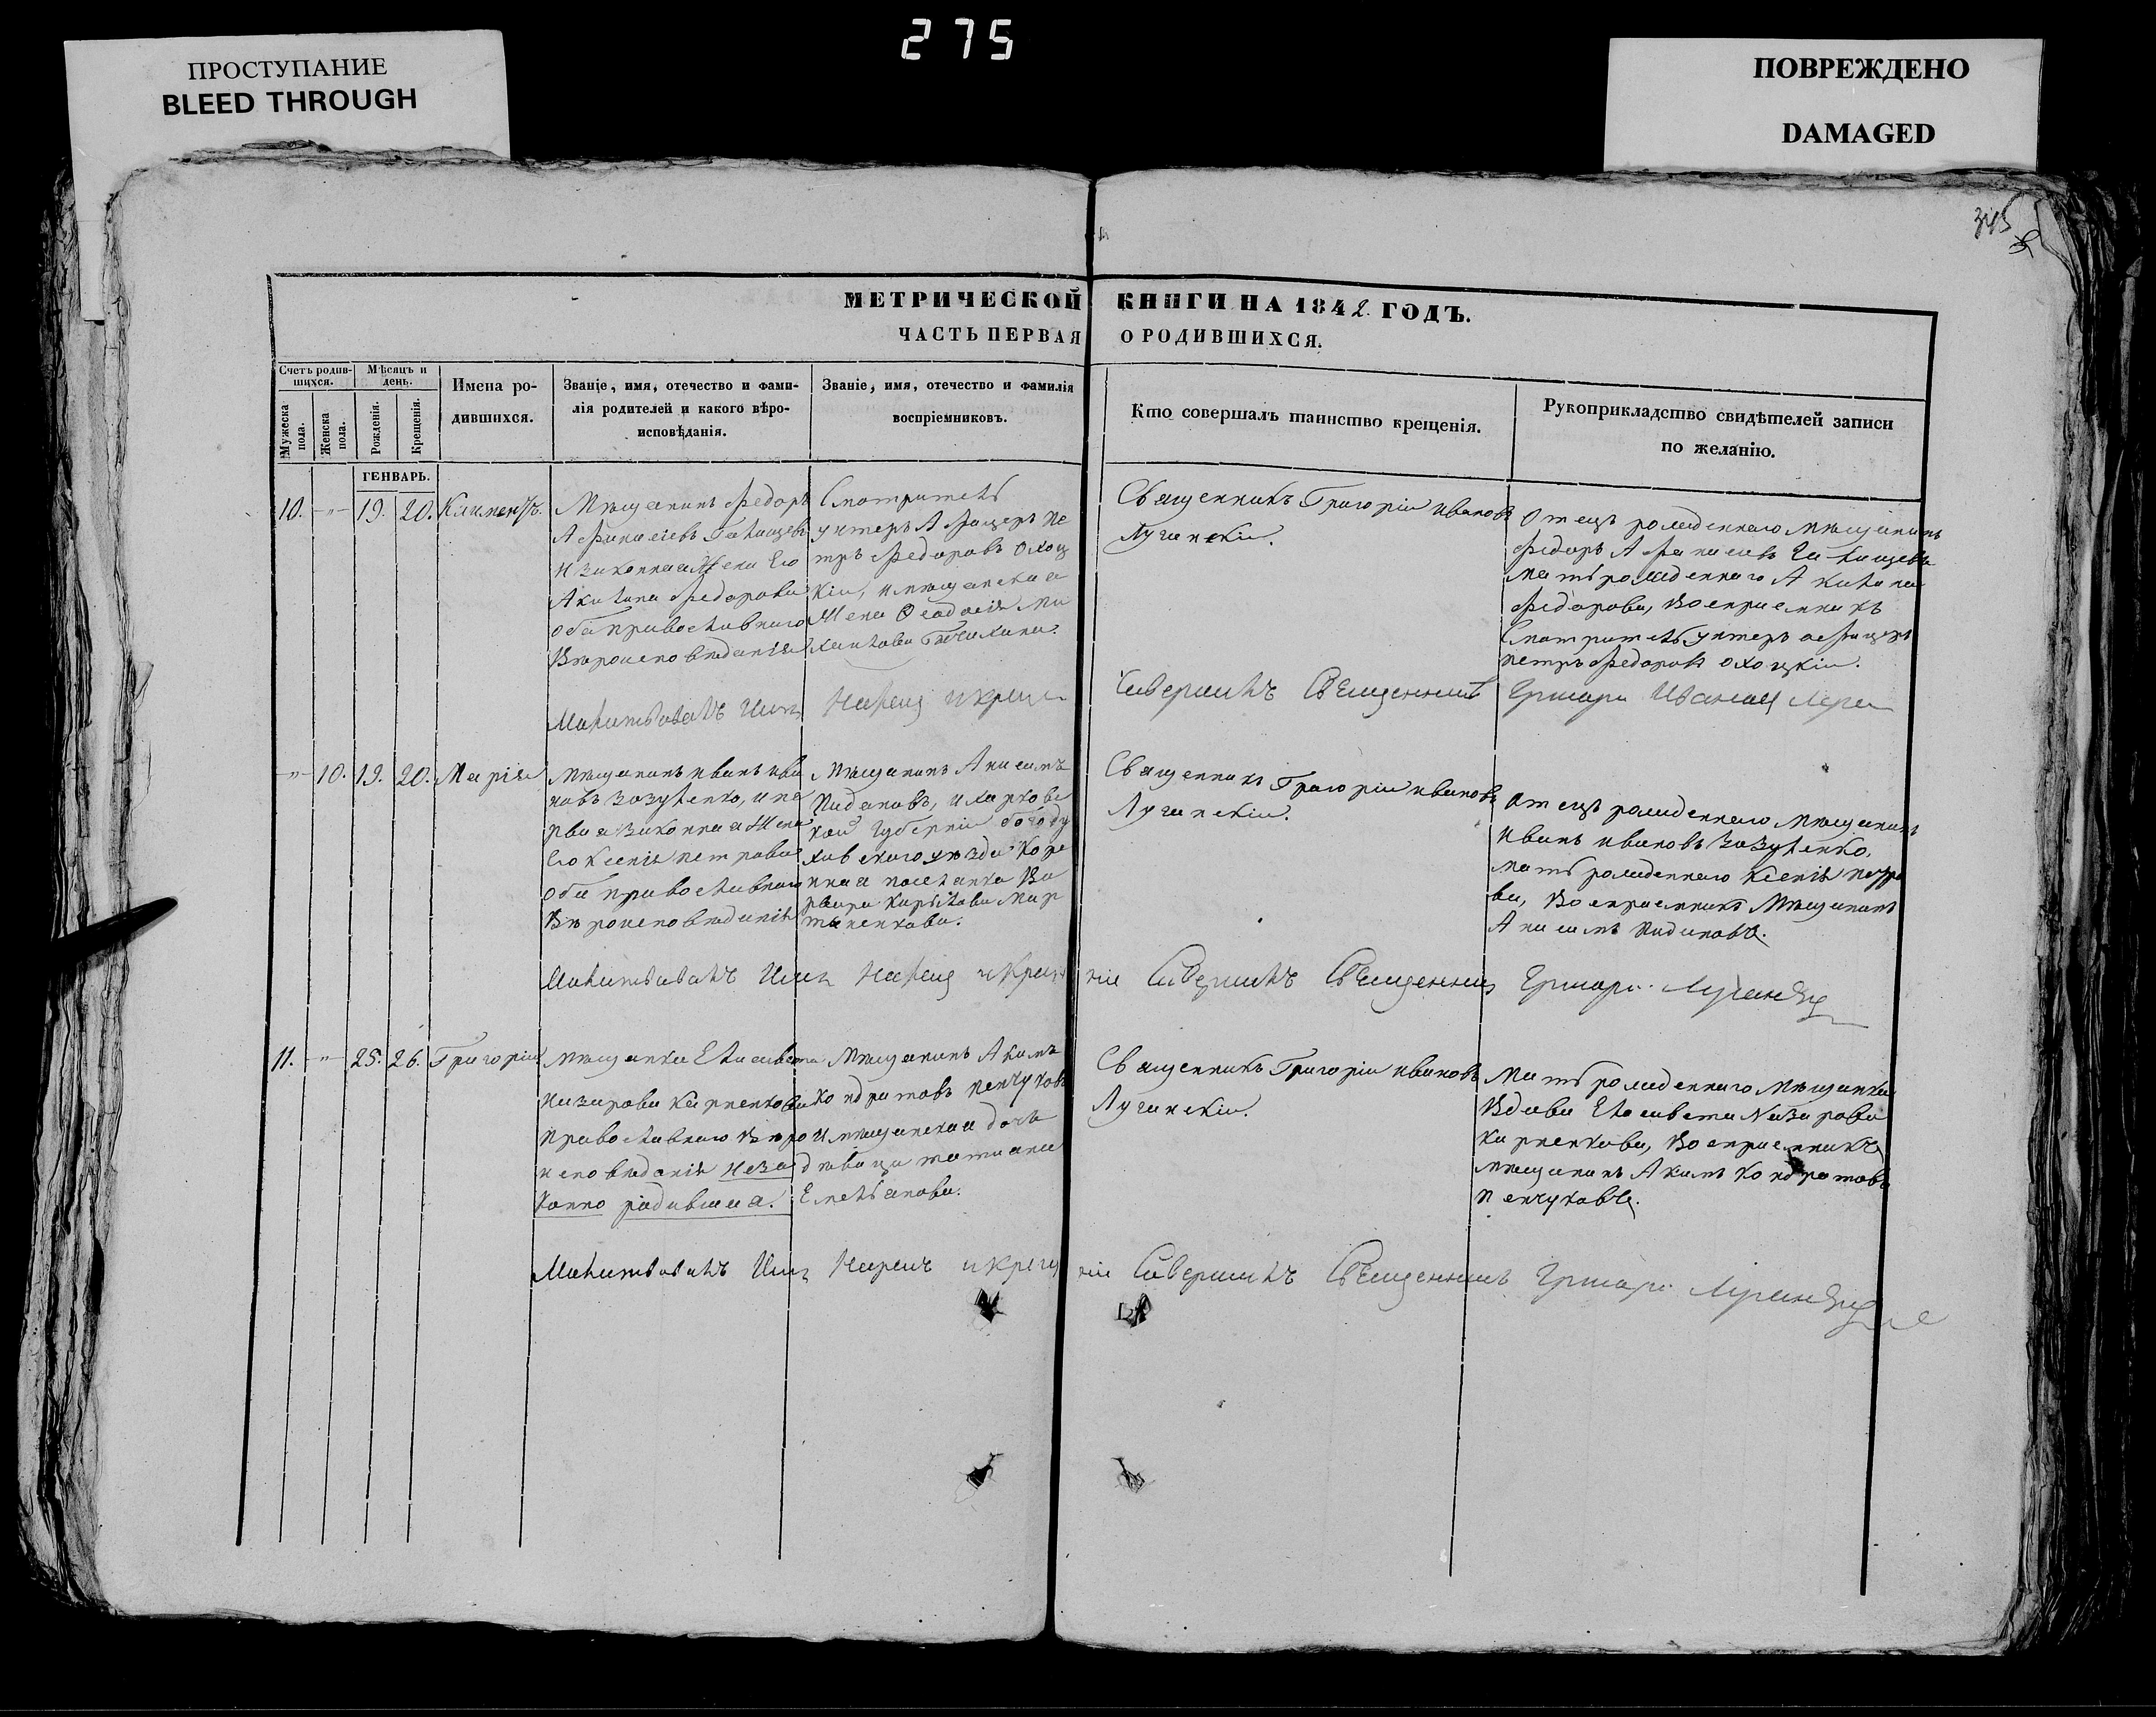 275
ПРОСТУПАНИЕ
BLEED THROUGH
ПОВРЕЖДЕНО
DAMAGED
345
МЕТРИЧЕСКОЙ КНИГИ НА 1842 ГОДЪ.
ЧАСТЬ ПЕРВАЯ О РОДИВШИХСЯ.
Счетъ родив-
шихся.
Мѣсяцъ и
день.
Мужеска
пола.
Женска
пола.
Рожденія.
Крещенія.
Имена ро-
дившихся.
Званіе, имя, отечество и фами-
лія родителей и какого вѣро-
исповѣданія.
Званіе, имя, отечество и фамилія
воспріемниковъ.
Кто совершалъ таинство крещенія.
Рукоприкладство свидѣтелей записи
по желанію.
ГЕНВАРЬ.
10. -"- 19. 20. Климентъ.
Мѣщанинъ Федоръ
Афанасіевъ
и законная Жена Его
Акилина Федорова
оба православнаго
Вѣроисповѣданія
Смотритель
унтеръ Афицеръ Пе
тръ Федоровъ Охоц
кій, и мѣщанская
Жена Феодосія Ми
хаилова
Священникъ Григорій Ивановъ
Лучинскій.
Отецъ рожденнаго мѣщанинъ
Федоръ Афанасіевъ
мать рожденнаго Акилина
Федорова, Воспріемникъ
Смотритель унтеръ офицеръ
петръ Федоровъ Охоцкій.
Молитвовалъ Имя Нарекъ и креще
Совершилъ Священникъ Григорій Ивановъ
-"- 10. 19. 20. Марія
Мѣщанинъ иванъ ива
новъ Зозуленко, и пе
рвая законная Жена
Его Ксенія петрова
оба православнаго
Вѣроисповѣданія
Мѣщанинъ Анисимъ
и харковс
кой Губерніи богоду
ховскаго уѣзда Коре
нная поселянка Ва
рвара Кирилова Мар
тыненкова.
Священникъ Григорій ивановъ
Лучинскій.
Отецъ рожденнаго мѣщанинъ
иванъ ивановъ Зозуленко,
мать рожденнаго Ксенія петро
ва, Воспріемникъ Мѣщанинъ
Анисимъ
Молитвовалъ Имя Нарекъ и Креще
ніе Совершилъ Священникъ Григорій Лучинскій
11. -"- 25. 26. Григорій
мѣщанка Елисавета
Назарова Карпенкова
православнаго Вѣро
исповѣданія неза
конно родившая.
Мѣщанинъ Акимъ
Кондратовъ Пенчуковъ
и мѣщанская дочь
дѣвица татіана
Емельянова.
Священникъ Григорій ивановъ
Лучинскій.
Мать рожденнаго Мѣщанка
Вдова Елисавета Назарова
Карпенкова, Воспріемникъ
мѣщанинъ Акимъ Кондратовъ
Пенчуковъ.
Молитвовалъ Имя Нарекъ и Креще
ніе Совершилъ Священникъ Григорій Лучинскій